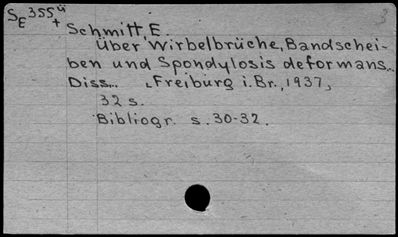 SE355ü
+
Schmitt, E.
Über Wirbelbrüche, Bandschei-
ben und Spondylosis deformans..
Diss.. Freiburg i.Br., 1937,
32 s.
Bibliogr. s. 30-32.
3